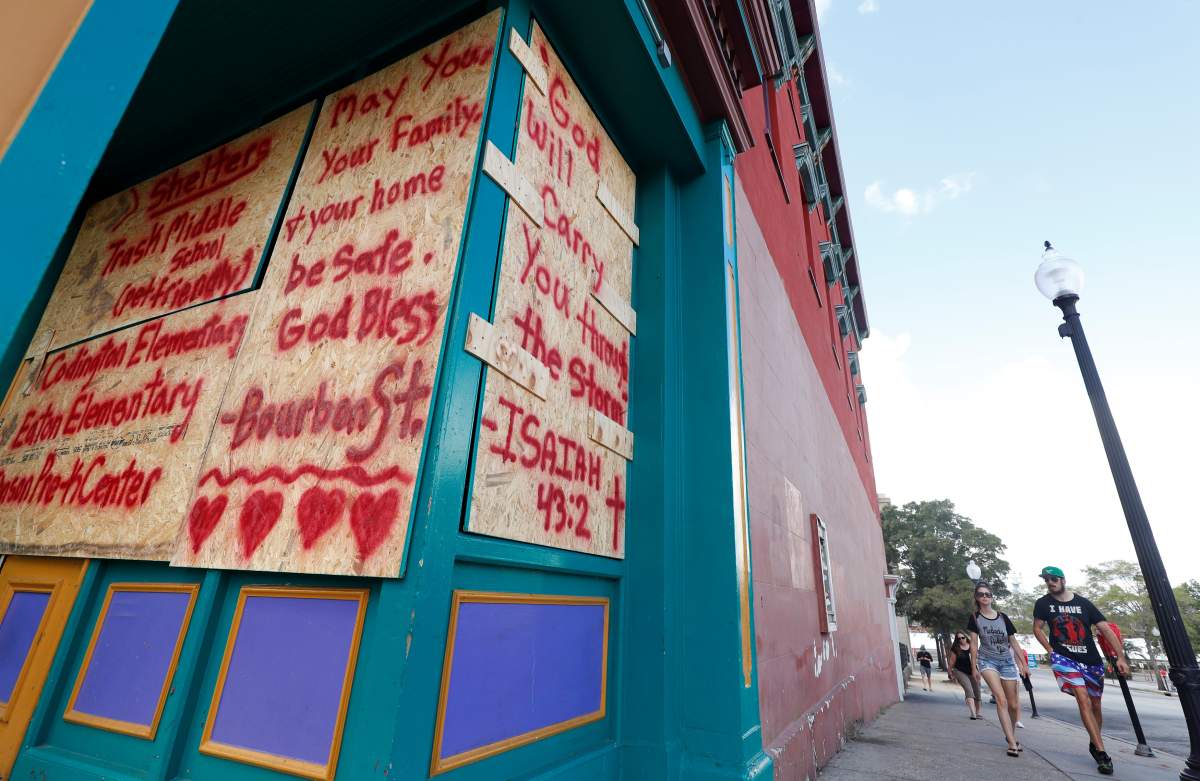 Shelters
Trash Middle
School
(pet-friendly)
Codington Elementary
Eaton Elementary
Pre-K Center
May You,
Your Family,
& your home
be safe.
God Bless
-Bourbon St.
"God
Will
Carry
You through
the Storm"
-ISAIAH
43:2
I HAVE
ISSUES